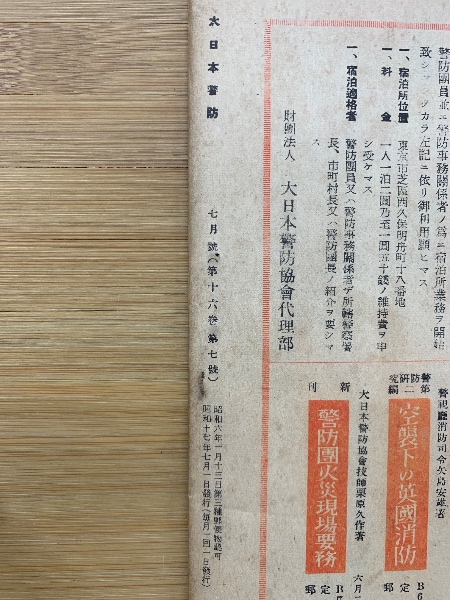 警防團員並ニ警防事務關係者ノ爲ニ宿泊所業務ヲ開始
致シマシタカラ左記ニ依リ御利用願ヒマス
一、宿泊所位置 東京市芝區西久保明舟町十八番地
一、料金 一人一泊二圓乃至一圓五十錢ノ維持費ヲ申
シ受ケマス
一、宿泊適格者 警防團員又ハ警防事務關係者デ所轄警察署
長、市町村長又ハ警防團長ノ紹介ヲ要シマ
ス
財團法人 大日本警防協會代理部
警視廳消防司令矢島安雄著
警防研究第二編
空襲下の英國消防
定
郵
新刊
大日本警防協會技師栗原久作著
警防團火災現場要務
六月
定
郵
大日本警防 七月號(第十六卷第七號)
昭和六年一月十三日第三種郵便物認可
昭和十七年七月一日發行(毎月一回一日發行)